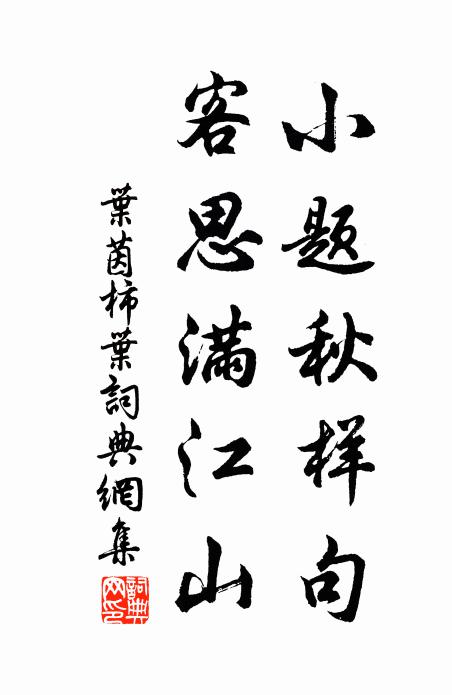 小题秋样句
客思满江山
葉茵柿葉詞典網集
詞典網印